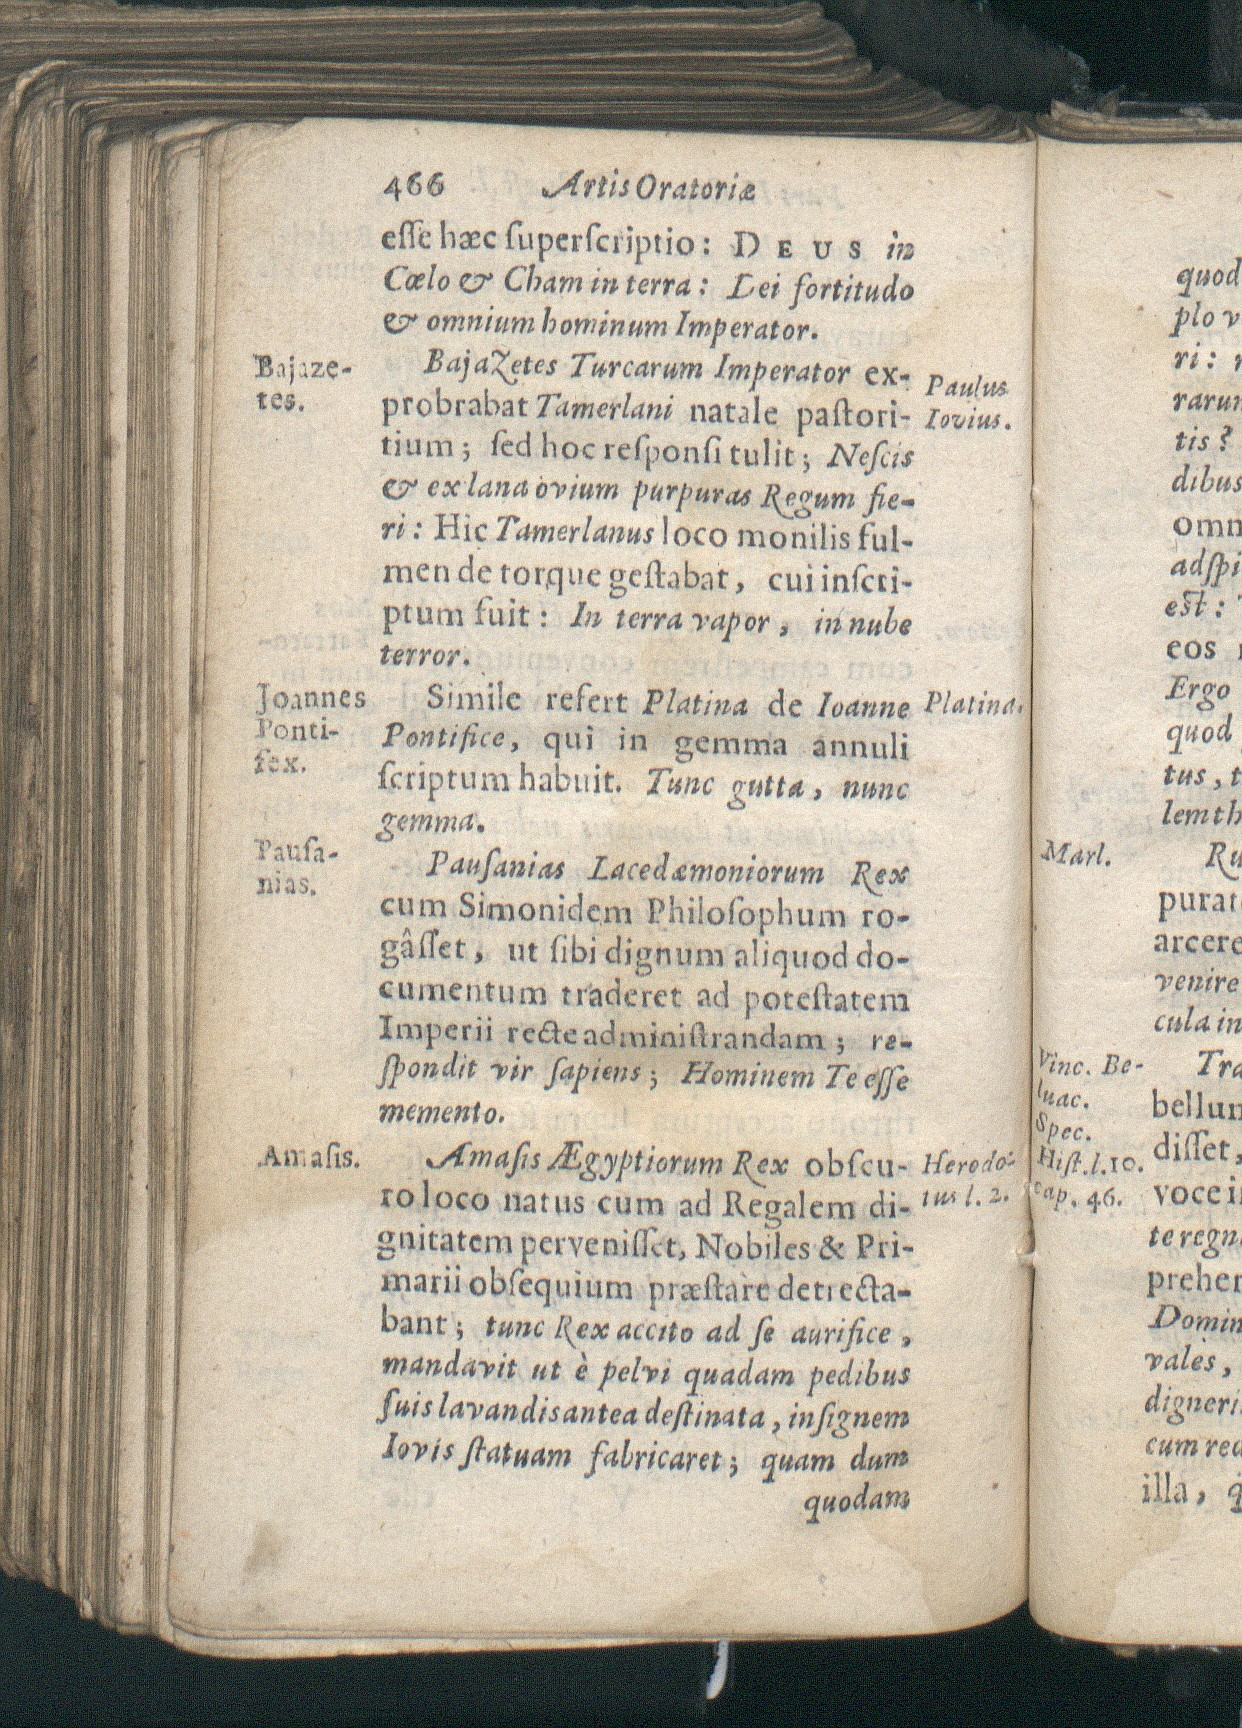 466 Artis Oratoriæ
eſſe hæc ſuperſcriptio: DEUS in
Cœlo & Cham in terra: Lei fortitudo
& omnium hominum Imperator.
Bajaze-
tes.
BajaZetes Turcarum Imperator ex-
probrabat Tamerlani natale paſtori-
tium; ſed hoc reſponſi tulit; Neſcis
& ex lana ovium purpuras Regum fie-
ri: Hic Tamerlanus loco monilis ful-
men de torque geſtabat, cui inſcri-
ptum fuit: In terra vapor, in nube
terror.
Paulus
Iovius.
Joannes
Ponti-
fex.
Simile refert Platina de Ioanne
Pontifice, qui in gemma annuli
ſcriptum habuit. Tunc gutta, nunc
gemma.
Platina.
Pauſa-
nias.
Pauſanias Lacedæmoniorum Rex
cum Simonidem Philoſophum ro-
gâſſet, ut ſibi dignum aliquod do-
cumentum traderet ad poteſtatem
Imperii recte adminiſtrandam; re-
ſpondit vir ſapiens; Hominem Te eſſe
memento.
Amaſis.
Amaſis Ægyptiorum Rex obſcu-
ro loco natus cum ad Regalem di-
gnitatem perveniſſet, Nobiles & Pri-
marii obſequium præſtare detrecta-
bant; tunc Rex accito ad ſe aurifice,
mandavit ut è pelvi quadam pedibus
ſuis lavandis antea deſtinata, inſignem
Iovis ſtatuam fabricaret; quam dum
quodam
Herodo-
tus l. 2.
quod
plo v
ri:
rarum
tis?
dibus
omn
adſpi
eſt:
eos
Ergo
quod
tus, t
lem th
Marl.
Ru
purat
arcere
venire
cula in
Vinc. Be-
luac.
Spec.
Hiſt. l. 10.
cap. 46.
Tra
bellum
diſſet,
voce i
te regn
preher
Domin
vales,
digneri
cum rea
illa, q